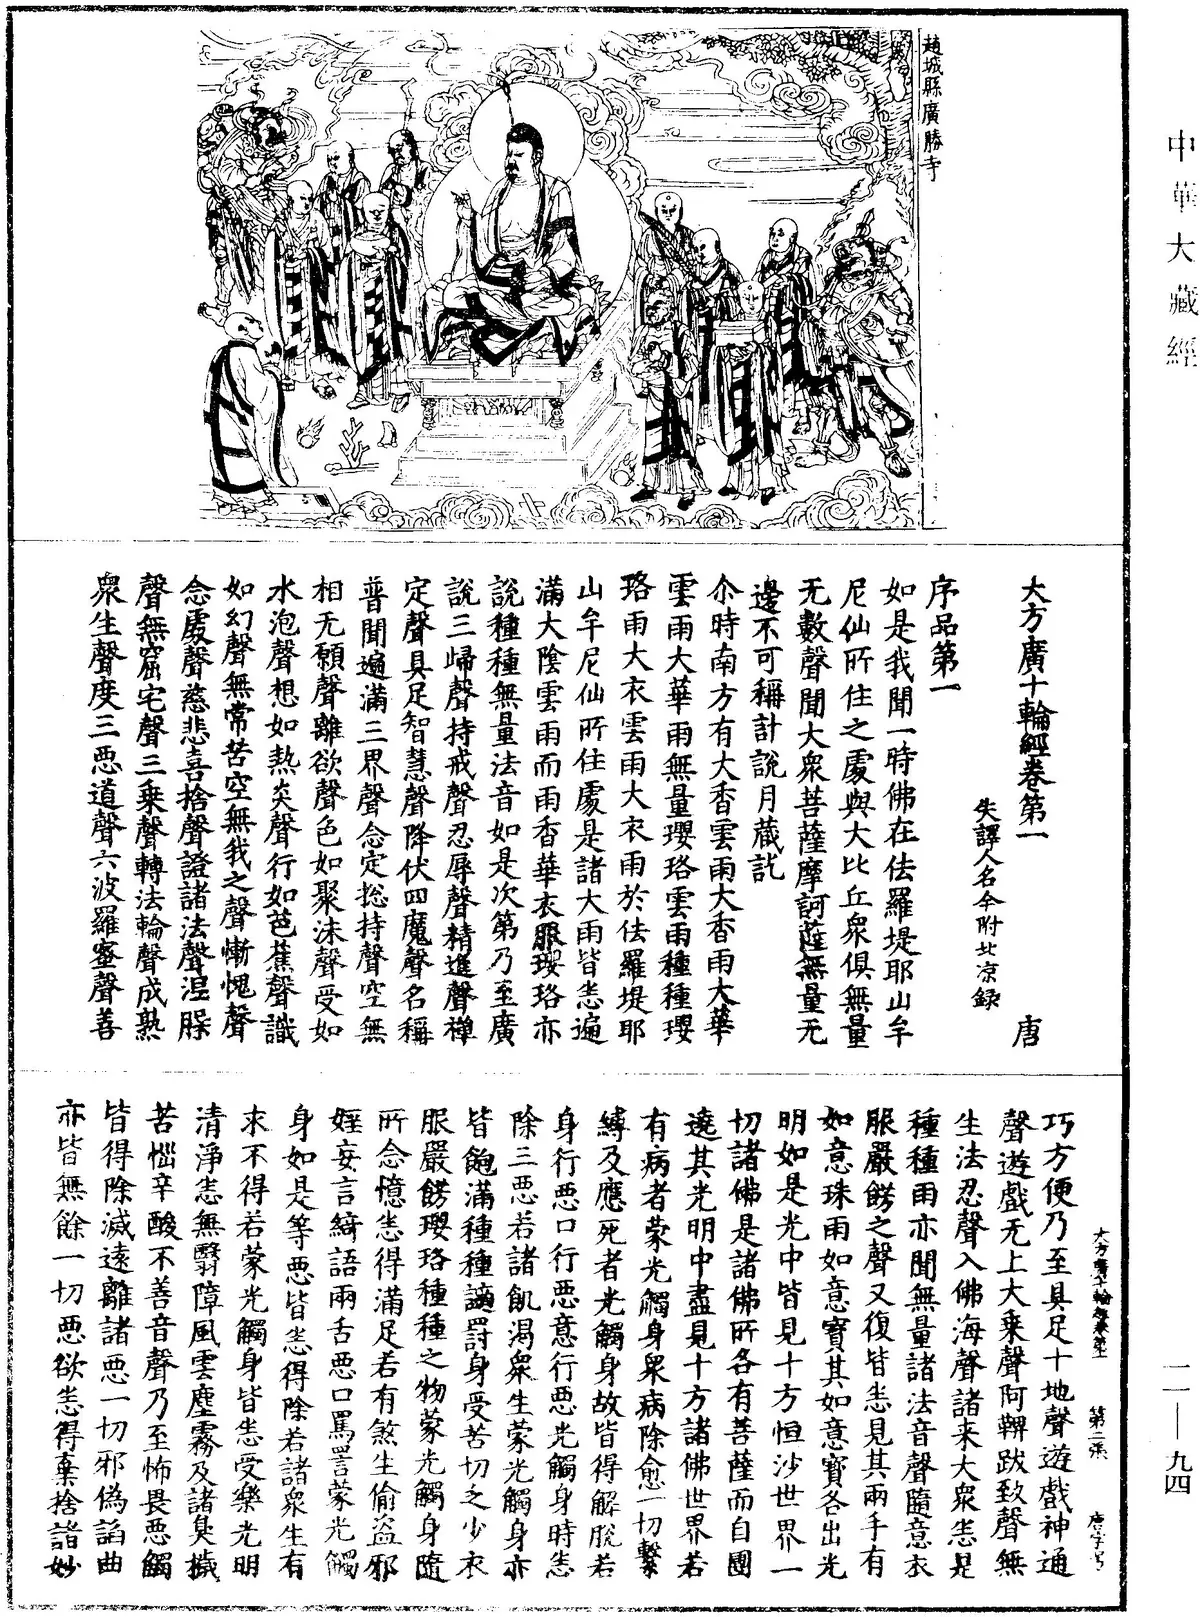 中華大藏經
趙城縣廣勝寺
大方廣十輪經卷第一　唐
失譯人名今附北涼録
序品第一
如是我聞一時佛在佉羅堤耶山牟
尼仙所住之處與大比丘衆俱無量
无數聲聞大衆菩薩摩訶薩無量无
邊不可稱計說月藏訖
尒時南方有大香雲雨大香雨大華
雲雨大華雨無量瓔珞雲雨種種瓔
珞雨大衣雲雨大衣雨於佉羅堤耶
山牟尼仙所住處是諸大雨皆悉遍
滿大陰雲雨而雨香華衣服瓔珞亦
說種種無量法音如是次第乃至廣
說三歸聲持戒聲忍辱聲精進聲禪
定聲具足智慧聲降伏四魔聲名稱
普聞遍滿三界聲念定揔持聲空無
相无願聲離欲聲色如聚沫聲受如
水泡聲想如熱炎聲行如芭蕉聲識
如幻聲無常苦空無我之聲慚愧聲
念處聲慈悲喜捨聲證諸法聲涅槃
聲無窟宅聲三乘聲轉法輪聲成熟
衆生聲度三惡道聲六波羅蜜聲善
大方廣十輪經卷第一　第二張　唐字号
巧方便乃至具足十地聲遊戲神通
聲遊戲无上大乘聲阿鞞跋致聲無
生法忍聲入佛海聲諸来大衆悉是
種種雨亦聞無量諸法音聲隨意衣
服嚴餝之聲又復皆悉見其兩手有
如意珠雨如意寶其如意寶各出光
明如是光中皆見十方恒沙世界一
切諸佛是諸佛所各有菩薩而自圍
遶其光明中盡見十方諸佛世界若
有病者蒙光觸身衆病除愈一切繫
縛及應死者光觸身故皆得解脫若
身行惡口行惡意行惡光觸身時悉
除三惡若諸飢渴衆生蒙光觸身亦
皆飽滿種種讁罸身受苦切乏少衣
服嚴餝瓔珞種種之物蒙光觸身隨
所念憶悉得滿足若有煞生偷盜邪
婬妄言綺語兩舌惡口罵詈蒙光觸
身如是等惡皆悉得除若諸衆生有
求不得若蒙光觸身皆悉受樂光明
清淨悉無翳障風雲塵霧及諸臭穢
苦惱辛酸不善音聲乃至怖畏惡觸
皆得除滅遠離諸惡一切邪僞諂曲
亦皆無餘一切惡欲悉得棄捨諸妙
一一—九四